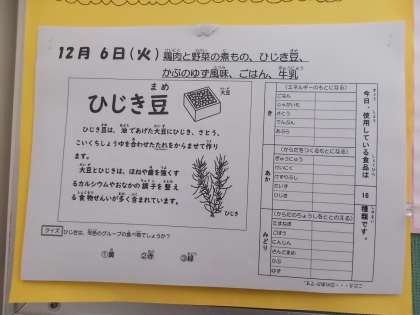 12月 6日(火) 鶏肉と野菜の煮もの、ひじき豆、
かぶのゆず風味、ごはん、牛乳
ひじき豆
まめ
大豆
ひじき豆は、油であげた大豆にひじき、さとう、
こいくちしょうゆを合わせたたれをからませて作り
ます。
大豆とひじきは、ほねや歯を強くす
るカルシウムやおなかの調子を整え
る食物せんいが多く含まれています。
ひじき
クイズ ひじきは、何色のグループの食べ物でしょうか？
①黄 ②赤 ③緑
今日、使用している食品は
16
種類です。
き
(エネルギーのもとになる)
ごはん
じゃがいも
さとう
でんぷん
あぶら
あか
(からだをつくるもとになる)
ぎゅうにゅう
けいにく
だいず
ひじき
みどり
(からだのちょうしをととのえる)
たまねぎ
ごぼう
にんじん
さんどまめ
かぶ
ゆず